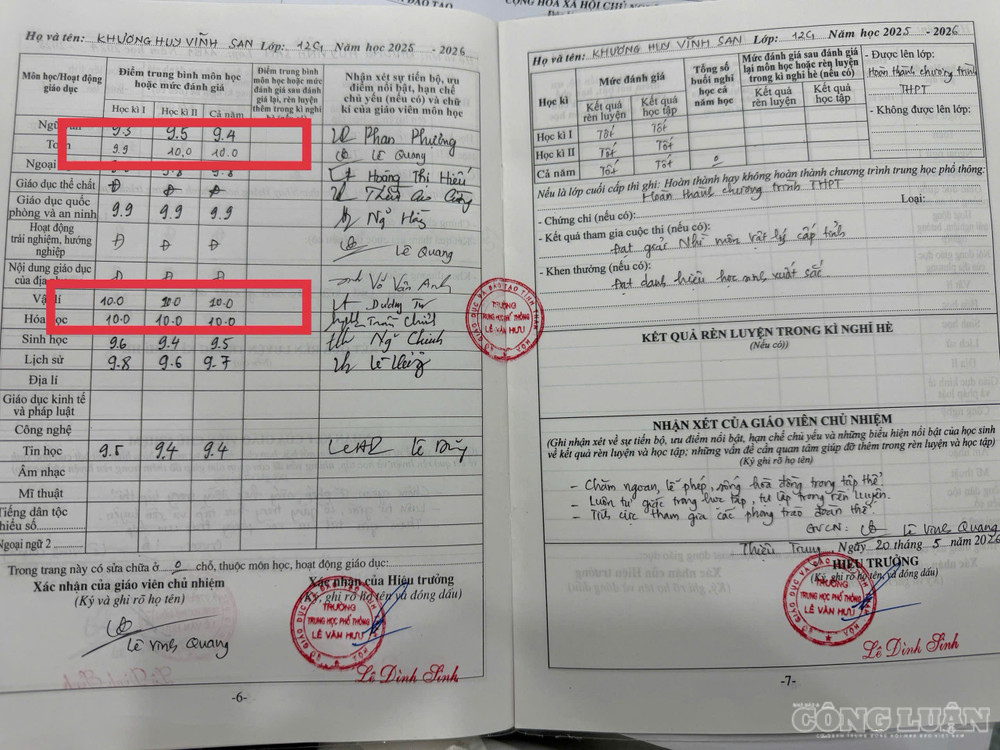 ĐÀO TẠO
CỘNG HÒA XÃ HỘI CHỦ NG
Họ và tên: KHƯƠNG HUY VĨNH SAN Lớp: 12C1 Năm học 2025 - 2026
Môn học/Hoạt động giáo dục
Điểm trung bình môn học hoặc mức đánh giá
Học kì I Học kì II Cả năm
Điểm trung bình môn học hoặc mức đánh giá sau đánh giá lại, rèn luyện thêm trong kì nghỉ
Nhận xét sự tiến bộ, ưu điểm nổi bật, hạn chế chủ yếu (nếu có) và chữ kí của giáo viên môn học
Ngữ 9.3 9.5 9.4 Phan Phương
Toán 9.9 10.0 10.0 Lê Quang
Ngoại 9.8 9.8 Hoàng Thị Hiếu
Giáo dục thể chất Đ Đ Đ
Giáo dục quốc phòng và an ninh 9.9 9.9 9.9
Hoạt động trải nghiệm, hướng nghiệp Đ Đ Đ Lê Quang
Nội dung giáo dục của địa Đ Đ Đ Vũ Vân Anh
Vật lí 10.0 10.0 10.0
Hóa học 10.0 10.0 10.0
Sinh học 9.6 9.4 9.5
Lịch sử 9.8 9.6 9.7
Địa lí
Giáo dục kinh tế và pháp luật
Công nghệ
Tin học 9.5 9.4 9.4
Âm nhạc
Mĩ thuật
Tiếng dân tộc thiểu số
Ngoại ngữ 2
Trong trang này có sửa chữa ở 0 chỗ, thuộc môn học, hoạt động giáo dục:
Xác nhận của giáo viên chủ nhiệm
(Ký và ghi rõ họ tên)
Lê Vinh Quang
Xác nhận của Hiệu trưởng
(Ký, ghi rõ họ tên và đóng dấu)
TRƯỜNG
TRUNG HỌC PHỔ THÔNG
LÊ VĂN HƯU
Lê Đình Sinh
-6-
Họ và tên: KHƯƠNG HUY VĨNH SAN Lớp: 12C1 Năm học 2025 - 2026
Học kì
Mức đánh giá
Kết quả rèn luyện
Kết quả học tập
Tổng số buổi nghỉ học cả năm học
Mức đánh giá sau đánh giá lại môn học hoặc rèn luyện trong kì nghỉ hè (nếu có)
Kết quả rèn luyện
Kết quả học tập
Học kì I Tốt Tốt
Học kì II Tốt Tốt
Cả năm Tốt Tốt 0
- Được lên lớp:
Hoàn thành chương trình
THPT
- Không được lên lớp:
Nếu là lớp cuối cấp thì ghi: Hoàn thành hay không hoàn thành chương trình trung học phổ thông:
Hoàn thành chương trình THPT
- Chứng chỉ (nếu có): Loại:
- Kết quả tham gia cuộc thi (nếu có):
Đạt giải Nhì môn vật lý cấp tỉnh
- Khen thưởng (nếu có):
Đạt danh hiệu học sinh xuất sắc.
TRƯỜNG
TRUNG HỌC PHỔ THÔNG
LÊ VĂN HƯU
KẾT QUẢ RÈN LUYỆN TRONG KÌ NGHỈ HÈ
(Nếu có))
NHẬN XÉT CỦA GIÁO VIÊN CHỦ NHIỆM
(Ghi nhận xét về sự tiến bộ, ưu điểm nổi bật, hạn chế chủ yếu và những biểu hiện nổi bật của học sinh
về kết quả rèn luyện và học tập; những vấn đề cần quan tâm giúp đỡ thêm trong rèn luyện và học tập)
(Ký ghi rõ họ tên)
- Chăm ngoan, lễ phép, sống hòa đồng trong tập thể.
- Luôn tự giác trong học tập, tự lập trong rèn luyện.
- Tích cực tham gia các phong trào đoàn thể
GVCN: Lê Vinh Quang
Thiệu Trung, Ngày 20 tháng 5 năm 2026
HIỆU TRƯỞNG
(Ký, ghi rõ họ tên và đóng dấu)
TRƯỜNG
TRUNG HỌC PHỔ THÔNG
LÊ VĂN HƯU
Lê Đình Sinh
-7-
CÔNG LUẬN